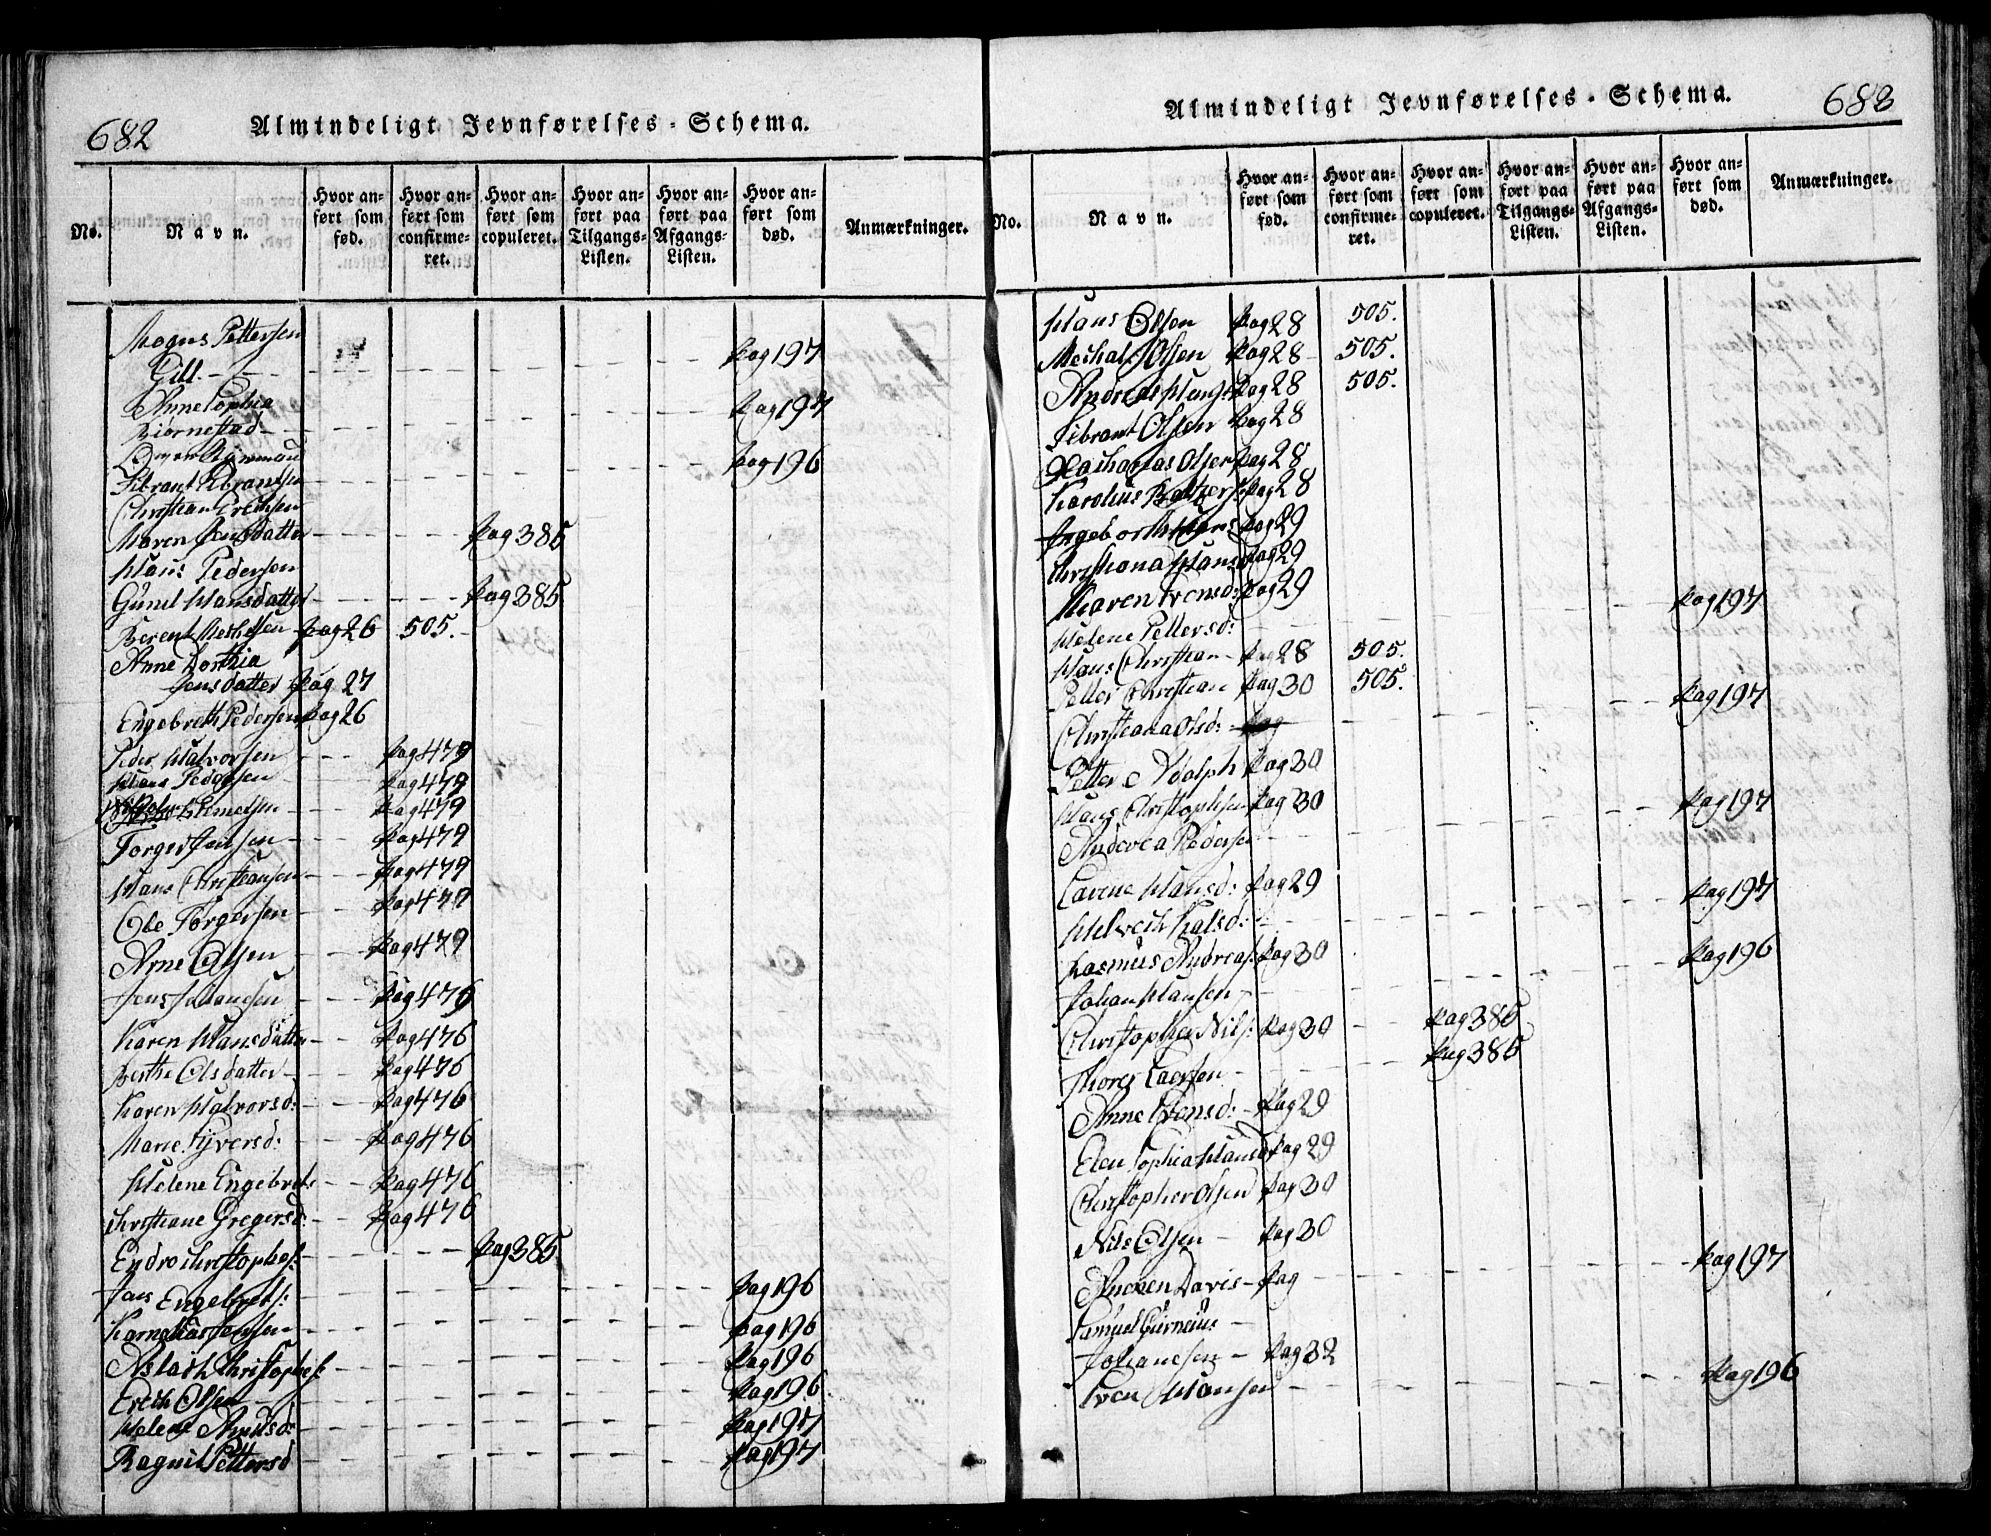 682
Almindeligt Jevnførelses-Schema.
No.
Navn.
Hvor anført som fød.
Hvor anført som confirmeret.
Hvor anført som copuleret.
Hvor anført paa Tilgangs-Listen.
Hvor anført paa Afgangs-Listen.
Hvor anført som død.
Anmærkninger.
Magnus Pettersen
Gill. pag 197
Anne Sophia
Biørnestad pag 197
pag 196
Sibrant Sibrantsen
Christian Erichsen
Maren Jensdatter pag 385
Hans Pedersen
Gunil Hansdatter pag 385
Berent pag 26 505.
Anne Dorthia
Jensdatter pag 27
Engebreth Pedersen pag 26
Peder Halvorsen pag 479
Hans Pedersen pag 479
pag 479
Torger Jensen pag 479
Hans Christiansen pag 479
Ole Torgersen pag 479
Arne Olsen pag 479
Jens Johansen pag 476
Karen Hansdatter pag 476
Berthe Olsdatter pag 476
Karen Halvorsd: pag 476
Marie Tyversd: pag 476
Helene Engebrets: pag 476
Christiane Gregersd: pag 476
Endre Christophers: pag 385
Jens Engebrets: pag 196
Karnelius Jensen pag 196
Aslach Christophers: pag 196
Erich Olsen pag 196
Helene Knudsd: pag 197
Ragnil Pettersd pag 197
683
Almindeligt Jevnførelses-Schema.
No.
Navn.
Hvor anført som fød.
Hvor anført som confirmeret.
Hvor anført som copuleret.
Hvor anført paa Tilgangs-Listen.
Hvor anført paa Afgangs-Listen.
Hvor anført som død.
Anmærkninger.
Hans Olsen pag 28 505.
Michal Olsen pag 28 505.
Andreas pag 28 505.
Sibrant Olsen pag 28
Zacharias Olsen pag 28
Karolius pag 28
Ingeborth Hans pag 29
Christiana Hansd pag 29
Maren Evensd: pag 29
Helene Pettersd: pag 197
Hans Christian pag 28 505.
Petter Christian pag 30 505.
Christiana Olsd: pag pag 197
Petter Adolph pag 30
Hans Christophersen pag 30
Andrea Pedersen pag 197
Carine Hansd: pag 29
Helvich pag 197
Rasmus Andreas: pag 30
Johan Hansen pag 196
Christopher Nils: pag 30 pag 386
Thores Larsen pag 385
Anne Evensd: pag 29
Elen Sophia Hansd pag 29
Christopher Olsen pag 30
Nils Olsen pag 30
Davis pag pag 197
Samuel
Johanesen pag 32
Even Hansen pag 196